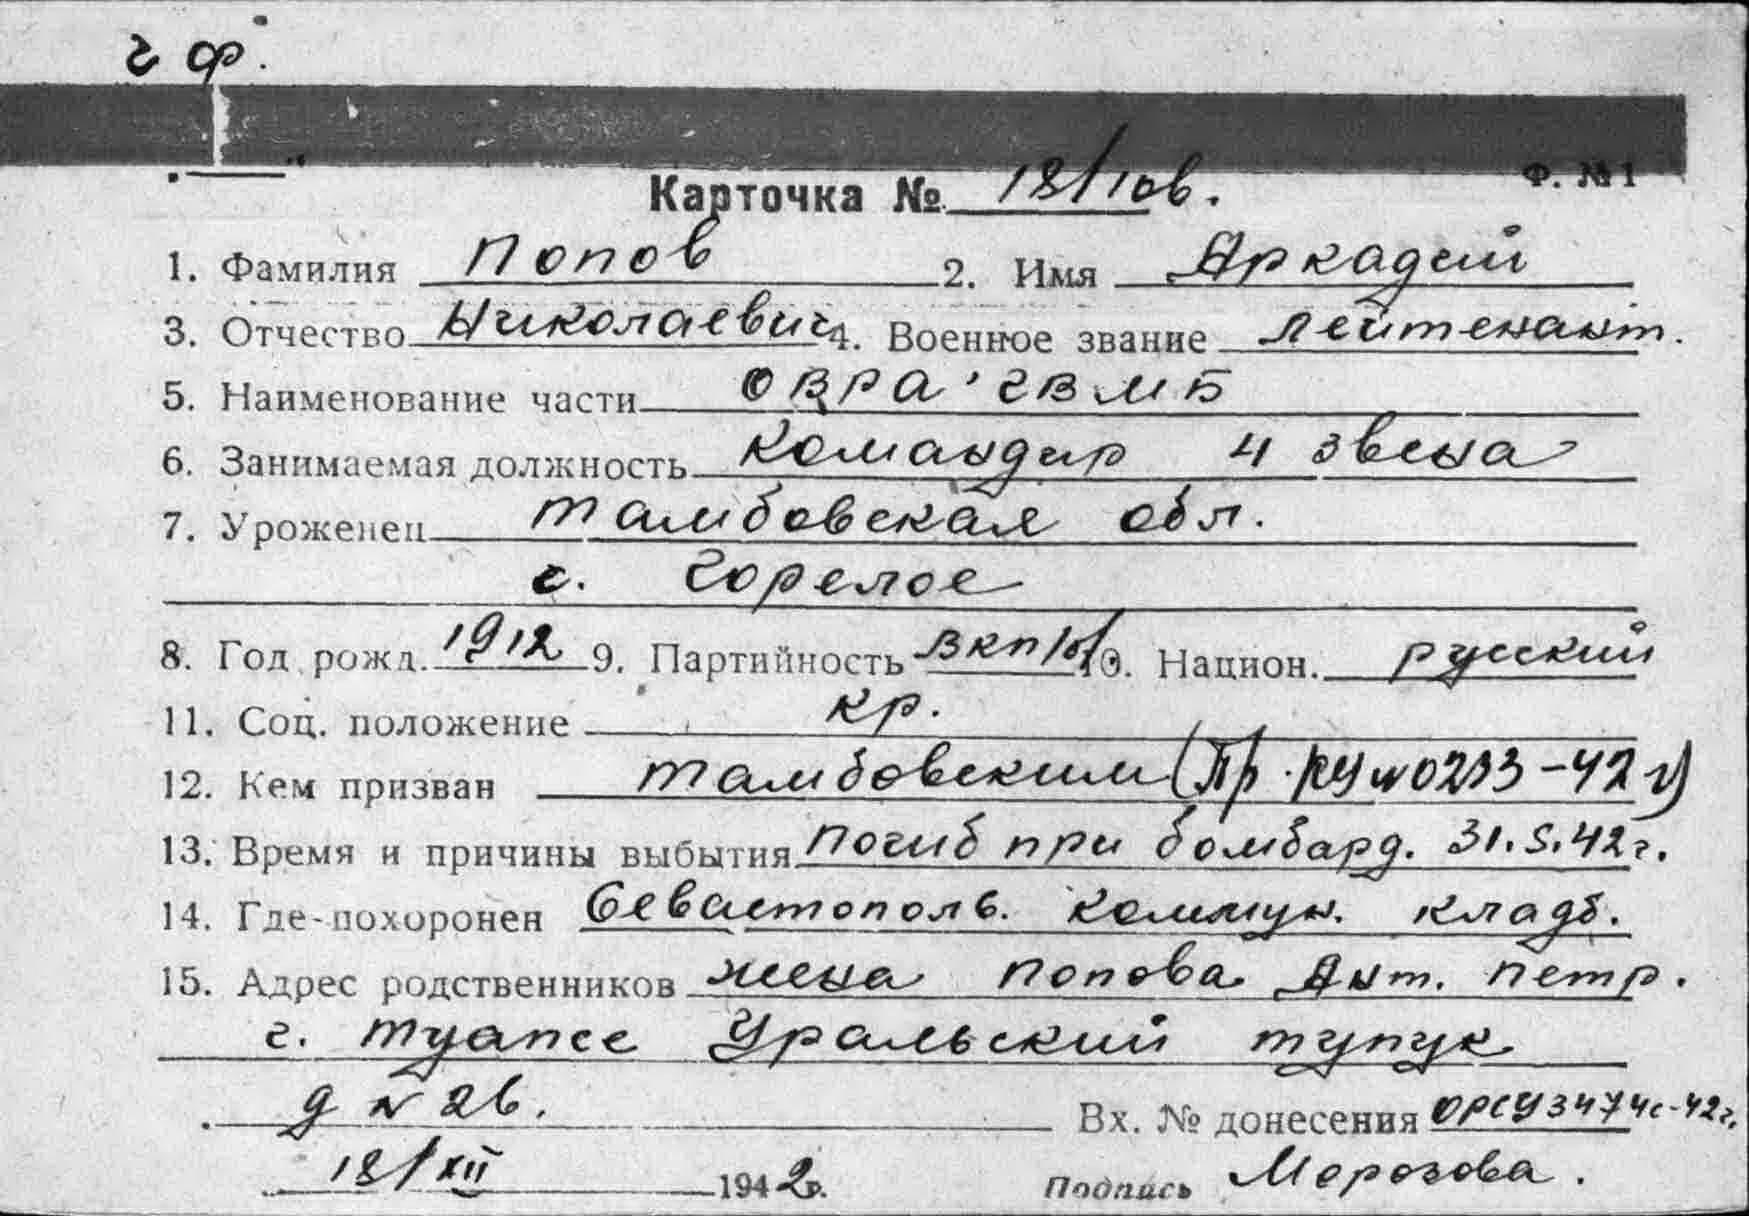 ч ф.
Ф. №1
Карточка № 18/10в.
1. Фамилия Попов 2. Имя Аркадий
3. Отчество Николаевич 4. Военное звание лейтенант.
5. Наименование части ОВРА ЧВМБ
6. Занимаемая должность командир 4 звена
7. Уроженец Тамбовская обл.
с. Горелое
8. Год рожд. 1912 9. Партийность ВКП/б/ 10. Национ. русский
11. Соц. положение кр.
12. Кем призван Тамбовским (Пр. РУ №0233-42 г)
13. Время и причины выбытия Погиб при бомбард. 31.5.42г.
14. Где похоронен Севастополь. Коммун. кладб.
15. Адрес родственников жена Попова Ант. Петр.
г. Туапсе Уральский тупук
д № 2в.
Вх. № донесения ОРСУ3474с-42г.
18/XII 1942г. Подпись Морозова.